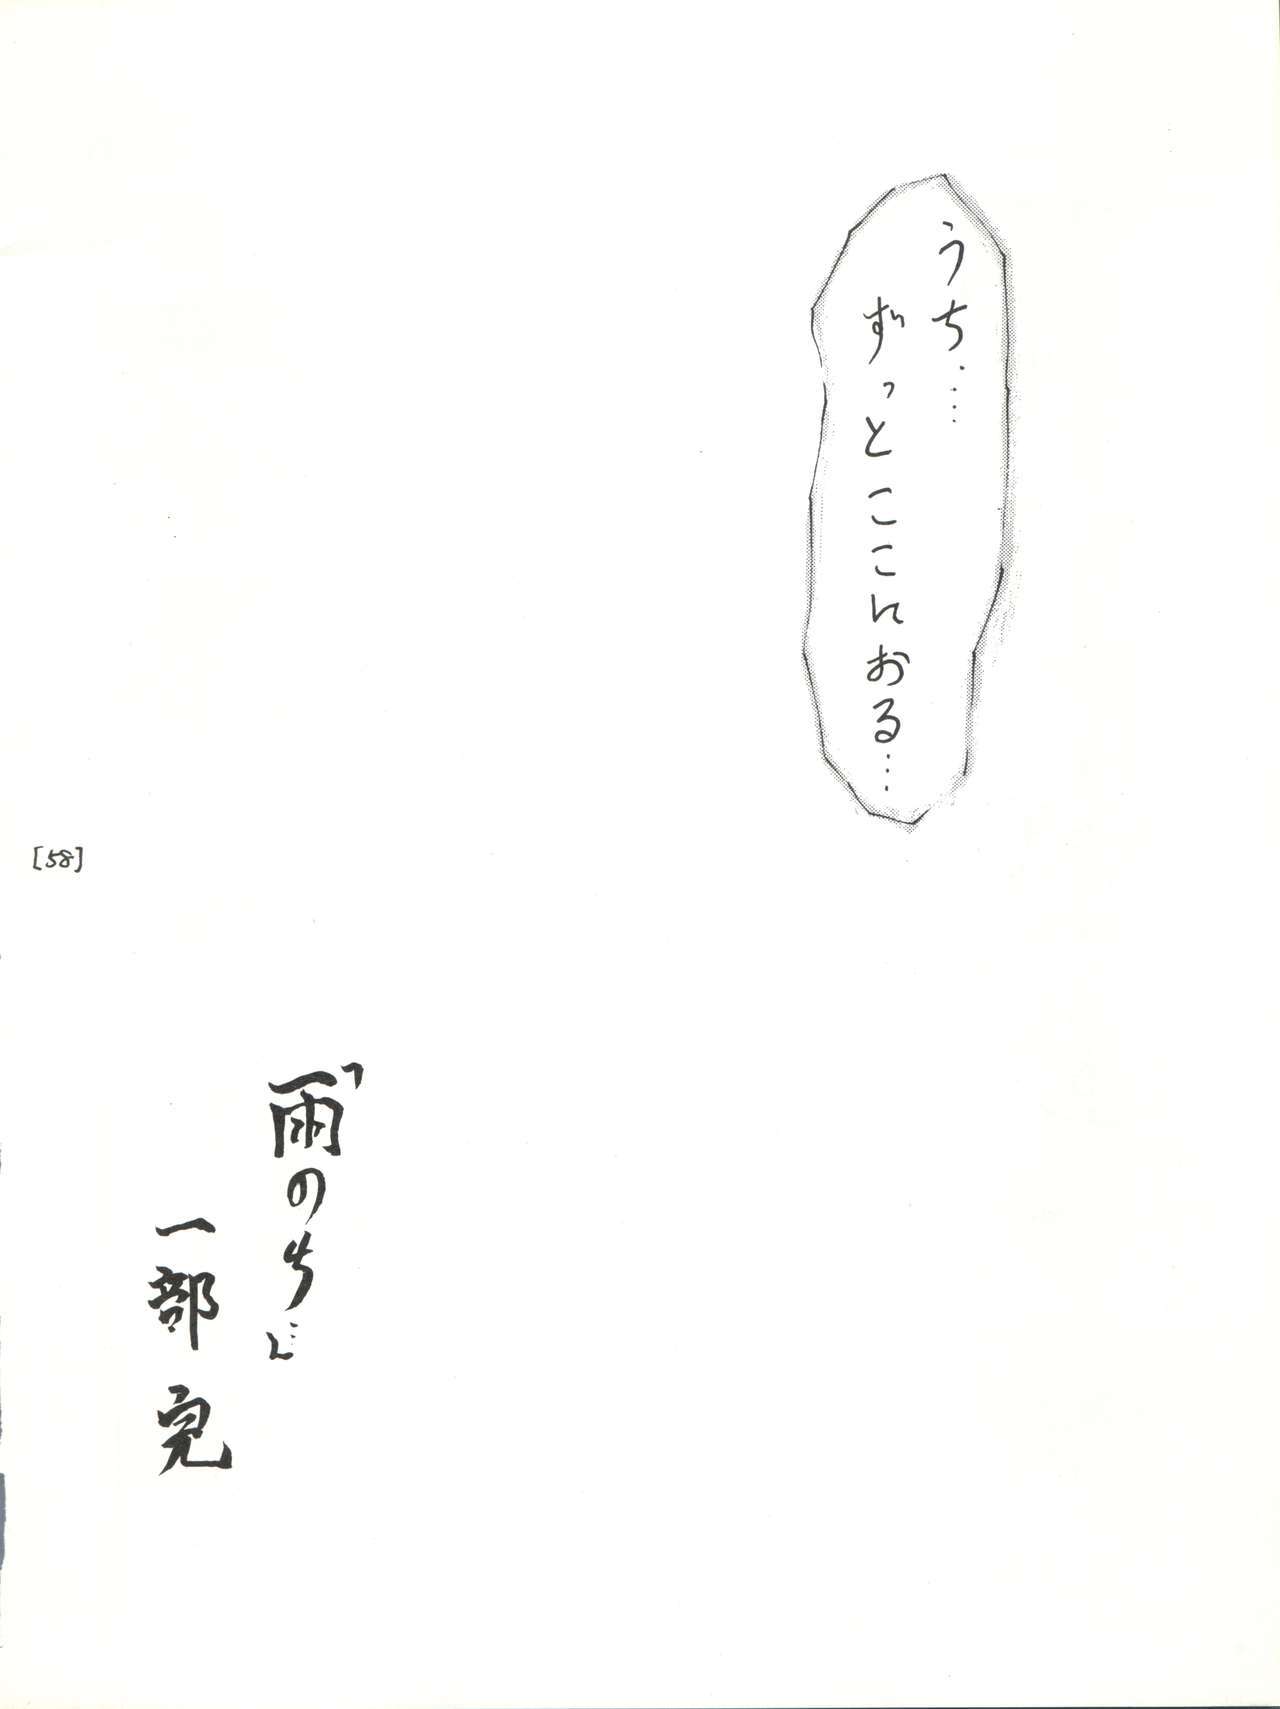 うち‥‥
ずっとここにおる‥‥
[58]
「雨のち…」
一部完